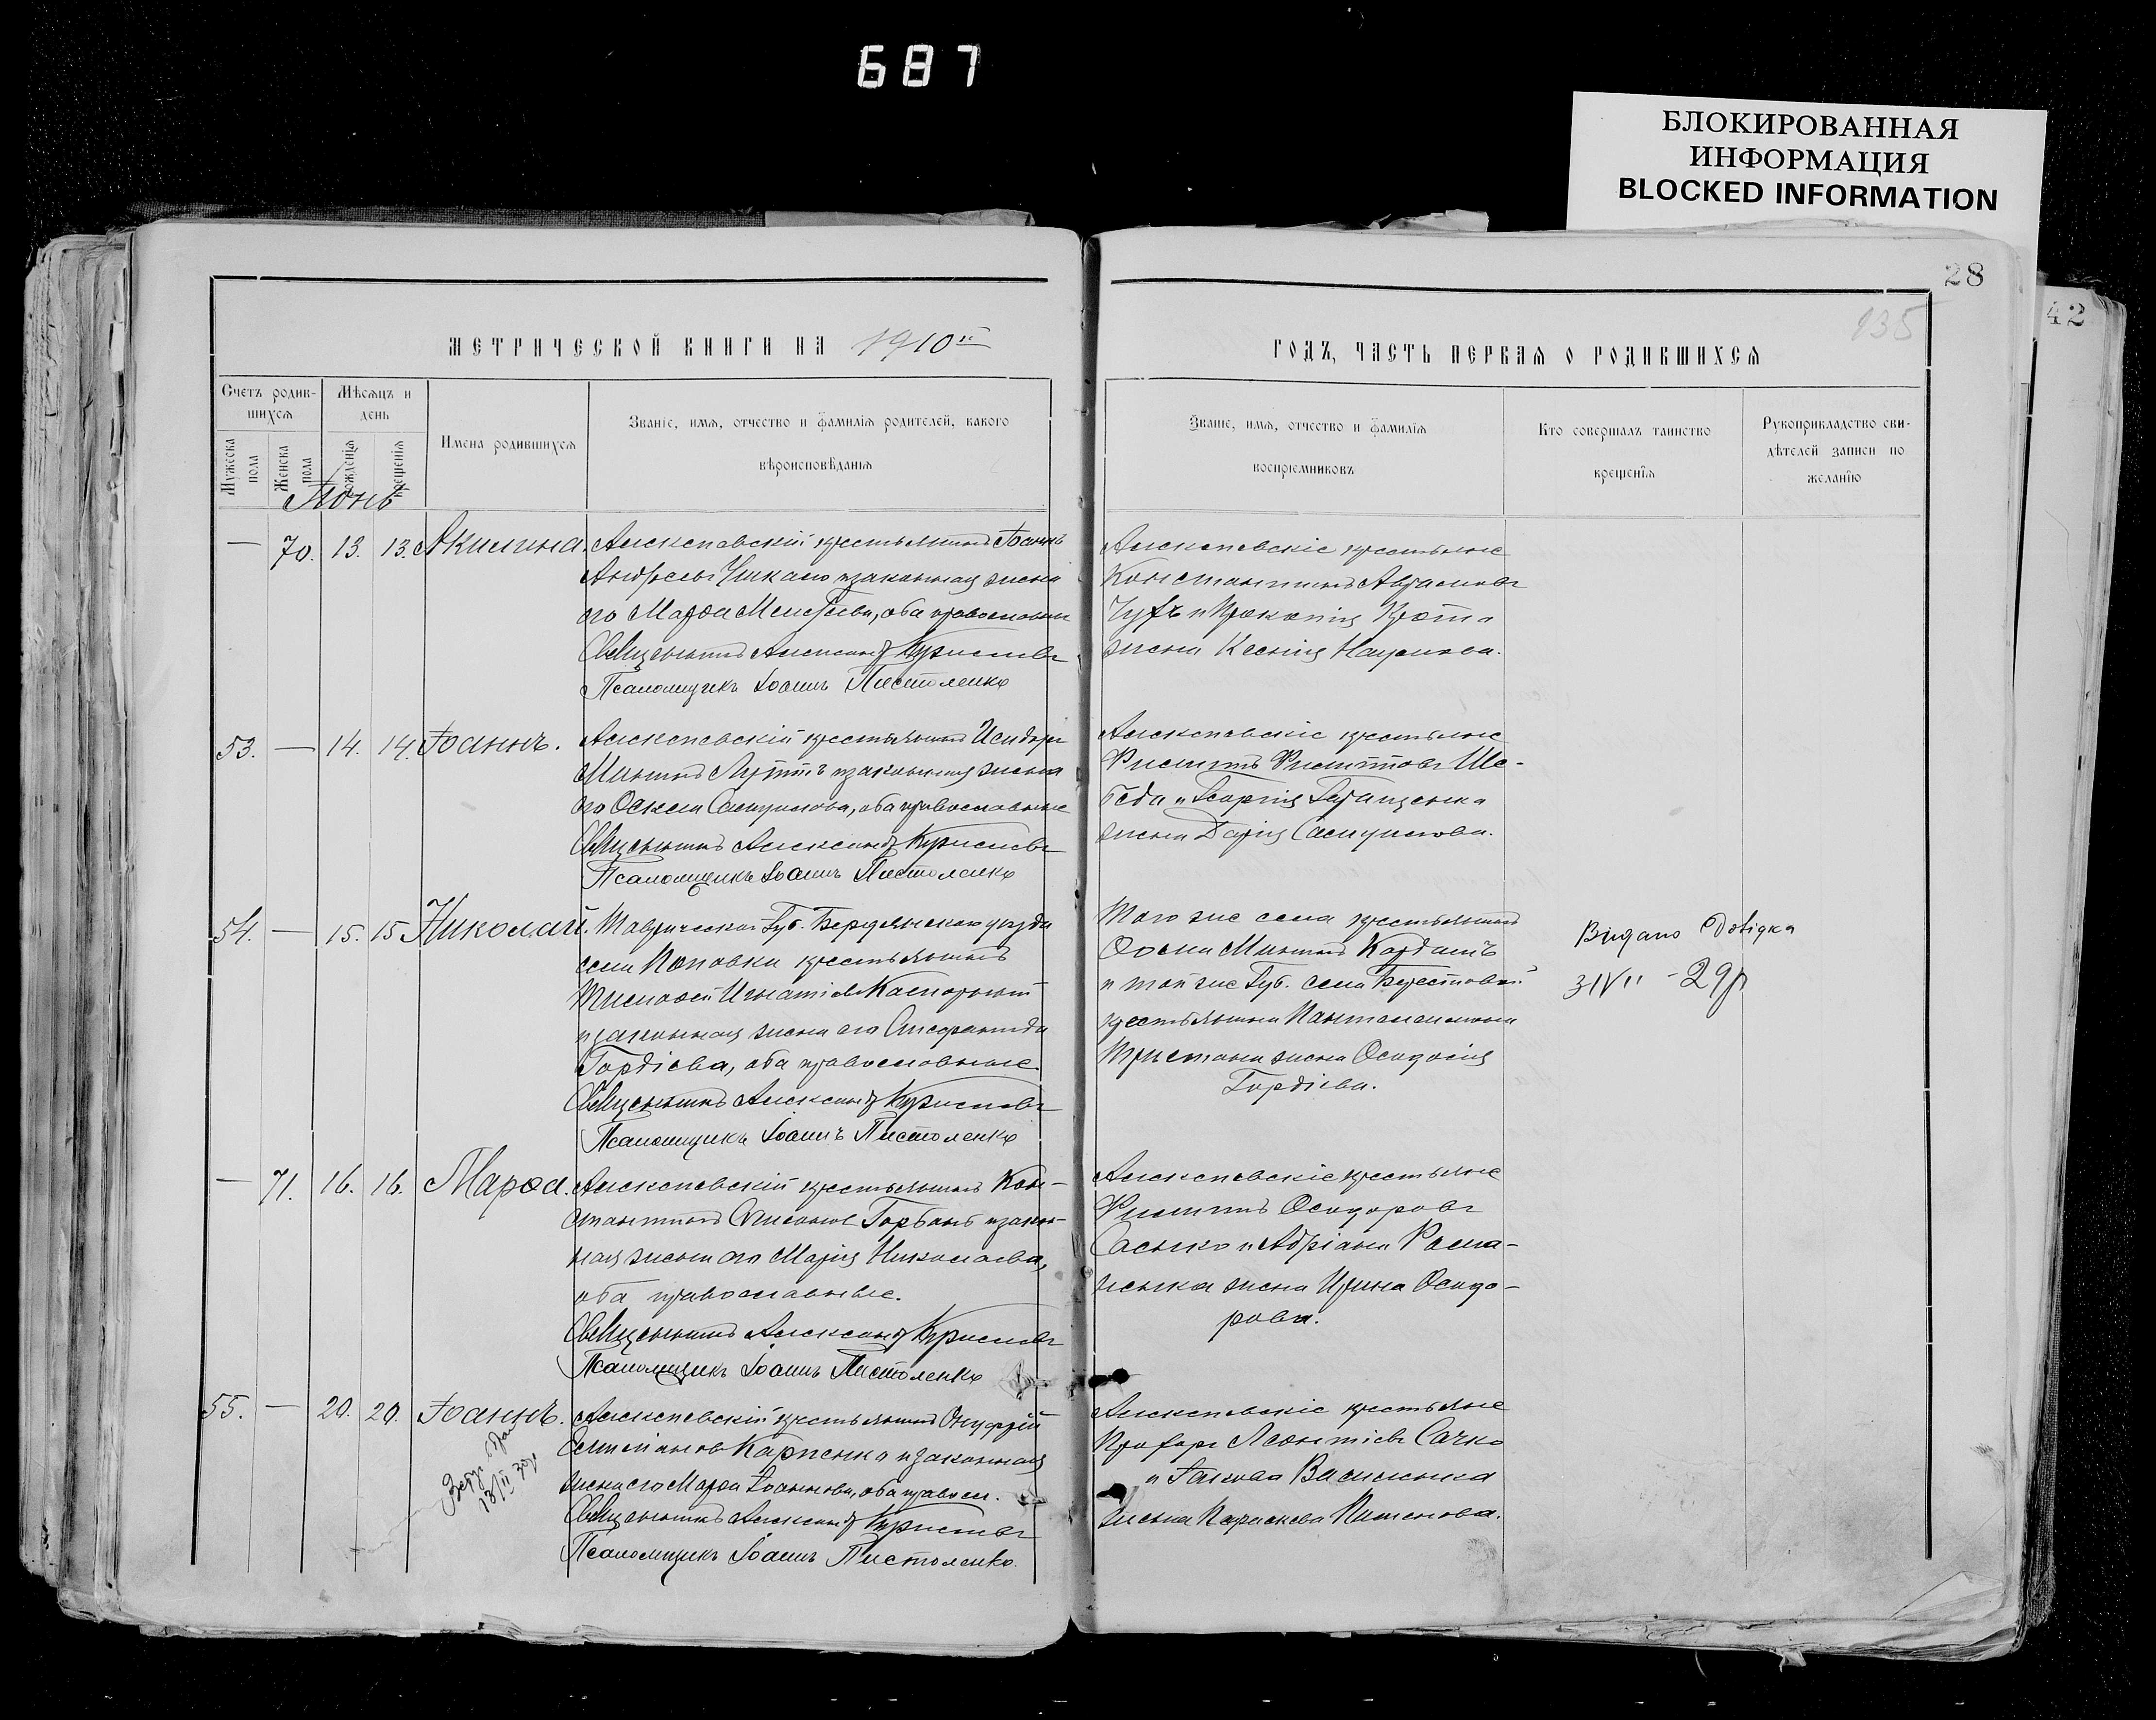 687
БЛОКИРОВАННАЯ
ИНФОРМАЦИЯ
BLOCKED INFORMATION
28
42
135
МЕТРИЧЕСКОЙ КНИГИ НА 1910й
ГОДЪ, ЧАСТЬ ПЕРВАЯ О РОДИВШИХСЯ
Счетъ родив-
шихся
Мѣсяцъ и
день
Мужеска
пола
Женска
пола
рожденія
крещенія
Имена родившихся
Званіе, имя, отчество и фамилія родителей, какого
вѣроисповѣданія
Званіе, имя, отчество и фамилія
воспріемниковъ
Кто совершалъ таинство
крещенія
Рукоприкладство сви-
дѣтелей записи по
желанію
Іюнь
— 70. 13. 13. Акилина. Алексѣевскій крестьянинъ Іоаннъ
Андреевъ Чикало и законная жена
его Марѳа Моисеева, оба православные
Священникъ Александръ
Псаломщикъ Іоаннъ Пистоленко
Алексѣевскіе крестьяне
Константинъ Авраамовъ
и Прокопія Крота
жена Ксенія Наумова.
53. — 14. 14. Іоаннъ. Алексѣевскій крестьянинъ Исидоръ
Мининъ и законная жена
его Самуилова, оба православные
Священникъ Александръ
Псаломщикъ Іоаннъ Пистоленко
Алексѣевскіе крестьяне
Филиппъ Филипповъ Ше-
беда и Георгія Геращенка
жена Дарія Самуилова.
54. — 15. 15 Николай. Таврической Губ. Бердянскаго уѣзда
села Поповки крестьянинъ
Тимоѳей Игнатіевъ
и законная жена его
Гордіева, оба православные.
Священникъ Александръ
Псаломщикъ Іоаннъ Пистоленко
Того же села крестьянинъ
Мининъ Кардашъ
и той же Губ. села Берестовой
крестьянина Пантелеимона
жена Ѳеодосія
Гордіева.
Видано Довідка
3/VII - 29р
— 71. 16. 16. Марѳа. Алексѣевскій крестьянинъ Кон-
стантинъ Симоновъ Горбань и закон-
ная жена его Марія Николаева,
оба православные.
Священникъ Александръ
Псаломщикъ Іоаннъ Пистоленко
Алексѣевскіе крестьяне
Филиппъ Ѳеодоровъ
Сасько и Адріана Рома-
ненка жена Ирина Ѳеодо-
рова.
55. — 20. 20. Іоаннъ. Алексѣевскій крестьянинъ Онуфрій
Карпенко и законная
жена его Марѳа Іоаннова, оба правосл.
Священникъ Александръ
Псаломщикъ Іоаннъ Пистоленко.
18/II 30р
Алексѣевскіе крестьяне
Леонтіевъ Сачко
и Іакова Василенка
жена Параскева Пименова.